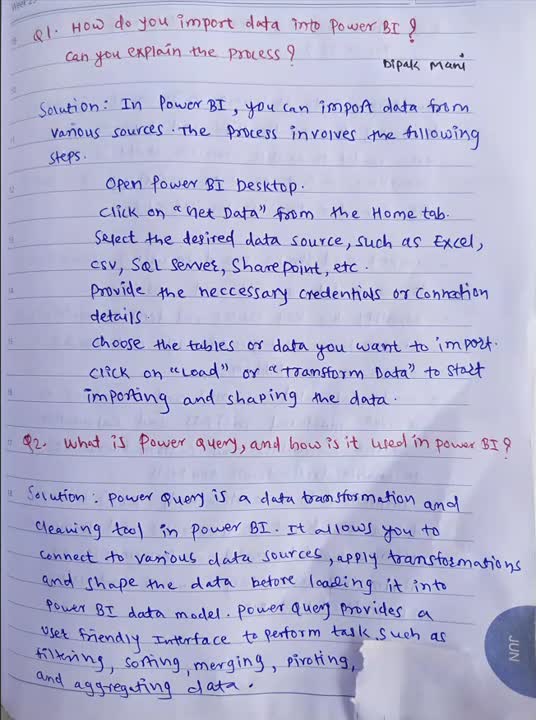 Week 2
Q1. How do you import data into Power BI?
Can you explain the process?
Dipak Mani
Solution: In Power BI, you can import data from
various sources. The process involves the following
steps.
Open Power BI Desktop.
Click on "Get Data" from the Home tab.
Select the desired data source, such as Excel,
CSV, SQL Server, SharePoint, etc.
Provide the neccessary credentials or Connection
details.
Choose the tables or data you want to import.
Click on "Load" or "Transform Data" to start
importing and shaping the data.
Q2. What is Power Query, and how is it used in Power BI?
Solution: Power Query is a data transformation and
cleaning tool in Power BI. It allows you to
connect to various data sources, apply transformations
and shape the data before loading it into
Power BI data model. Power Query provides a
user friendly Interface to perform task such as
filtering, sorting, merging, pivoting,
and aggregating data.
JUN